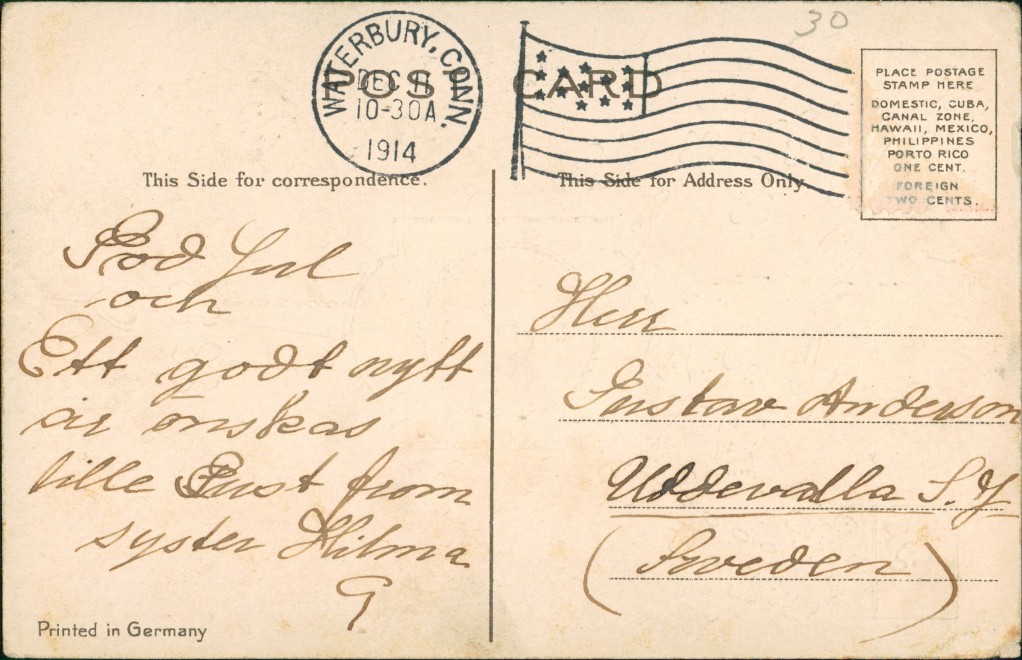 30
POST CARD
WATERBURY, CONN.
DEC 11
10-30A
1914
PLACE POSTAGE
STAMP HERE
DOMESTIC, CUBA,
CANAL ZONE,
HAWAII, MEXICO,
PHILIPPINES
PORTO RICO
ONE CENT.
FOREIGN
TWO CENTS.
This Side for correspondence.
God Jul
och
Ett godt nytt
år önskas
lille Gust from
syster Hilma
G
Printed in Germany
This Side for Address Only.
Herr
Gustav Anderson
Uddevalla S.J
(Sweden)